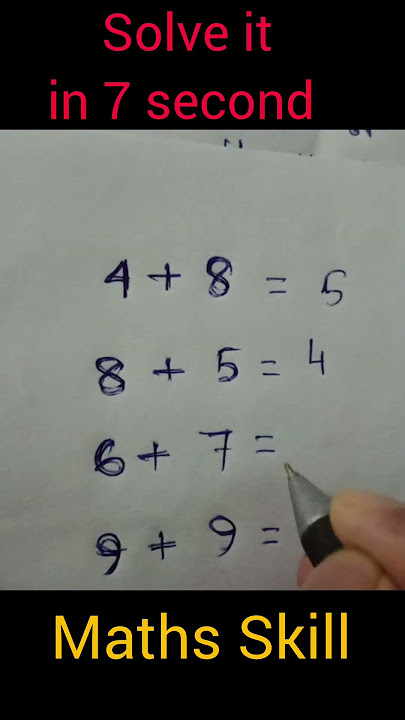 Solve it
in 7 second
4 + 8 = 5
8 + 5 = 4
6 + 7 =
9 + 9 =
Maths Skill